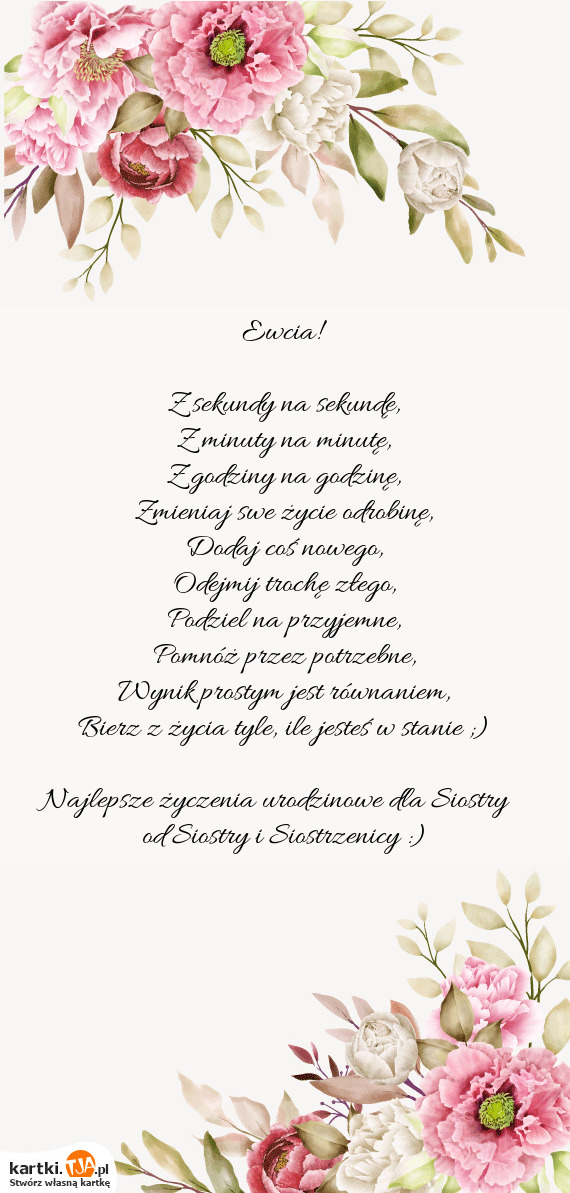 Ewcia!
Z sekundy na sekundę,
Z minuty na minutę,
Z godziny na godzinę,
Zmieniaj swe życie odrobinę,
Dodaj coś nowego,
Odejmij trochę złego,
Podziel na przyjemne,
Pomnóż przez potrzebne,
Wynik prostym jest równaniem,
Bierz z życia tyle, ile jesteś w stanie ;)
Najlepsze życzenia urodzinowe dla Siostry
od Siostry i Siostrzenicy :)
kartki.TJA.pl
Stwórz własną kartkę